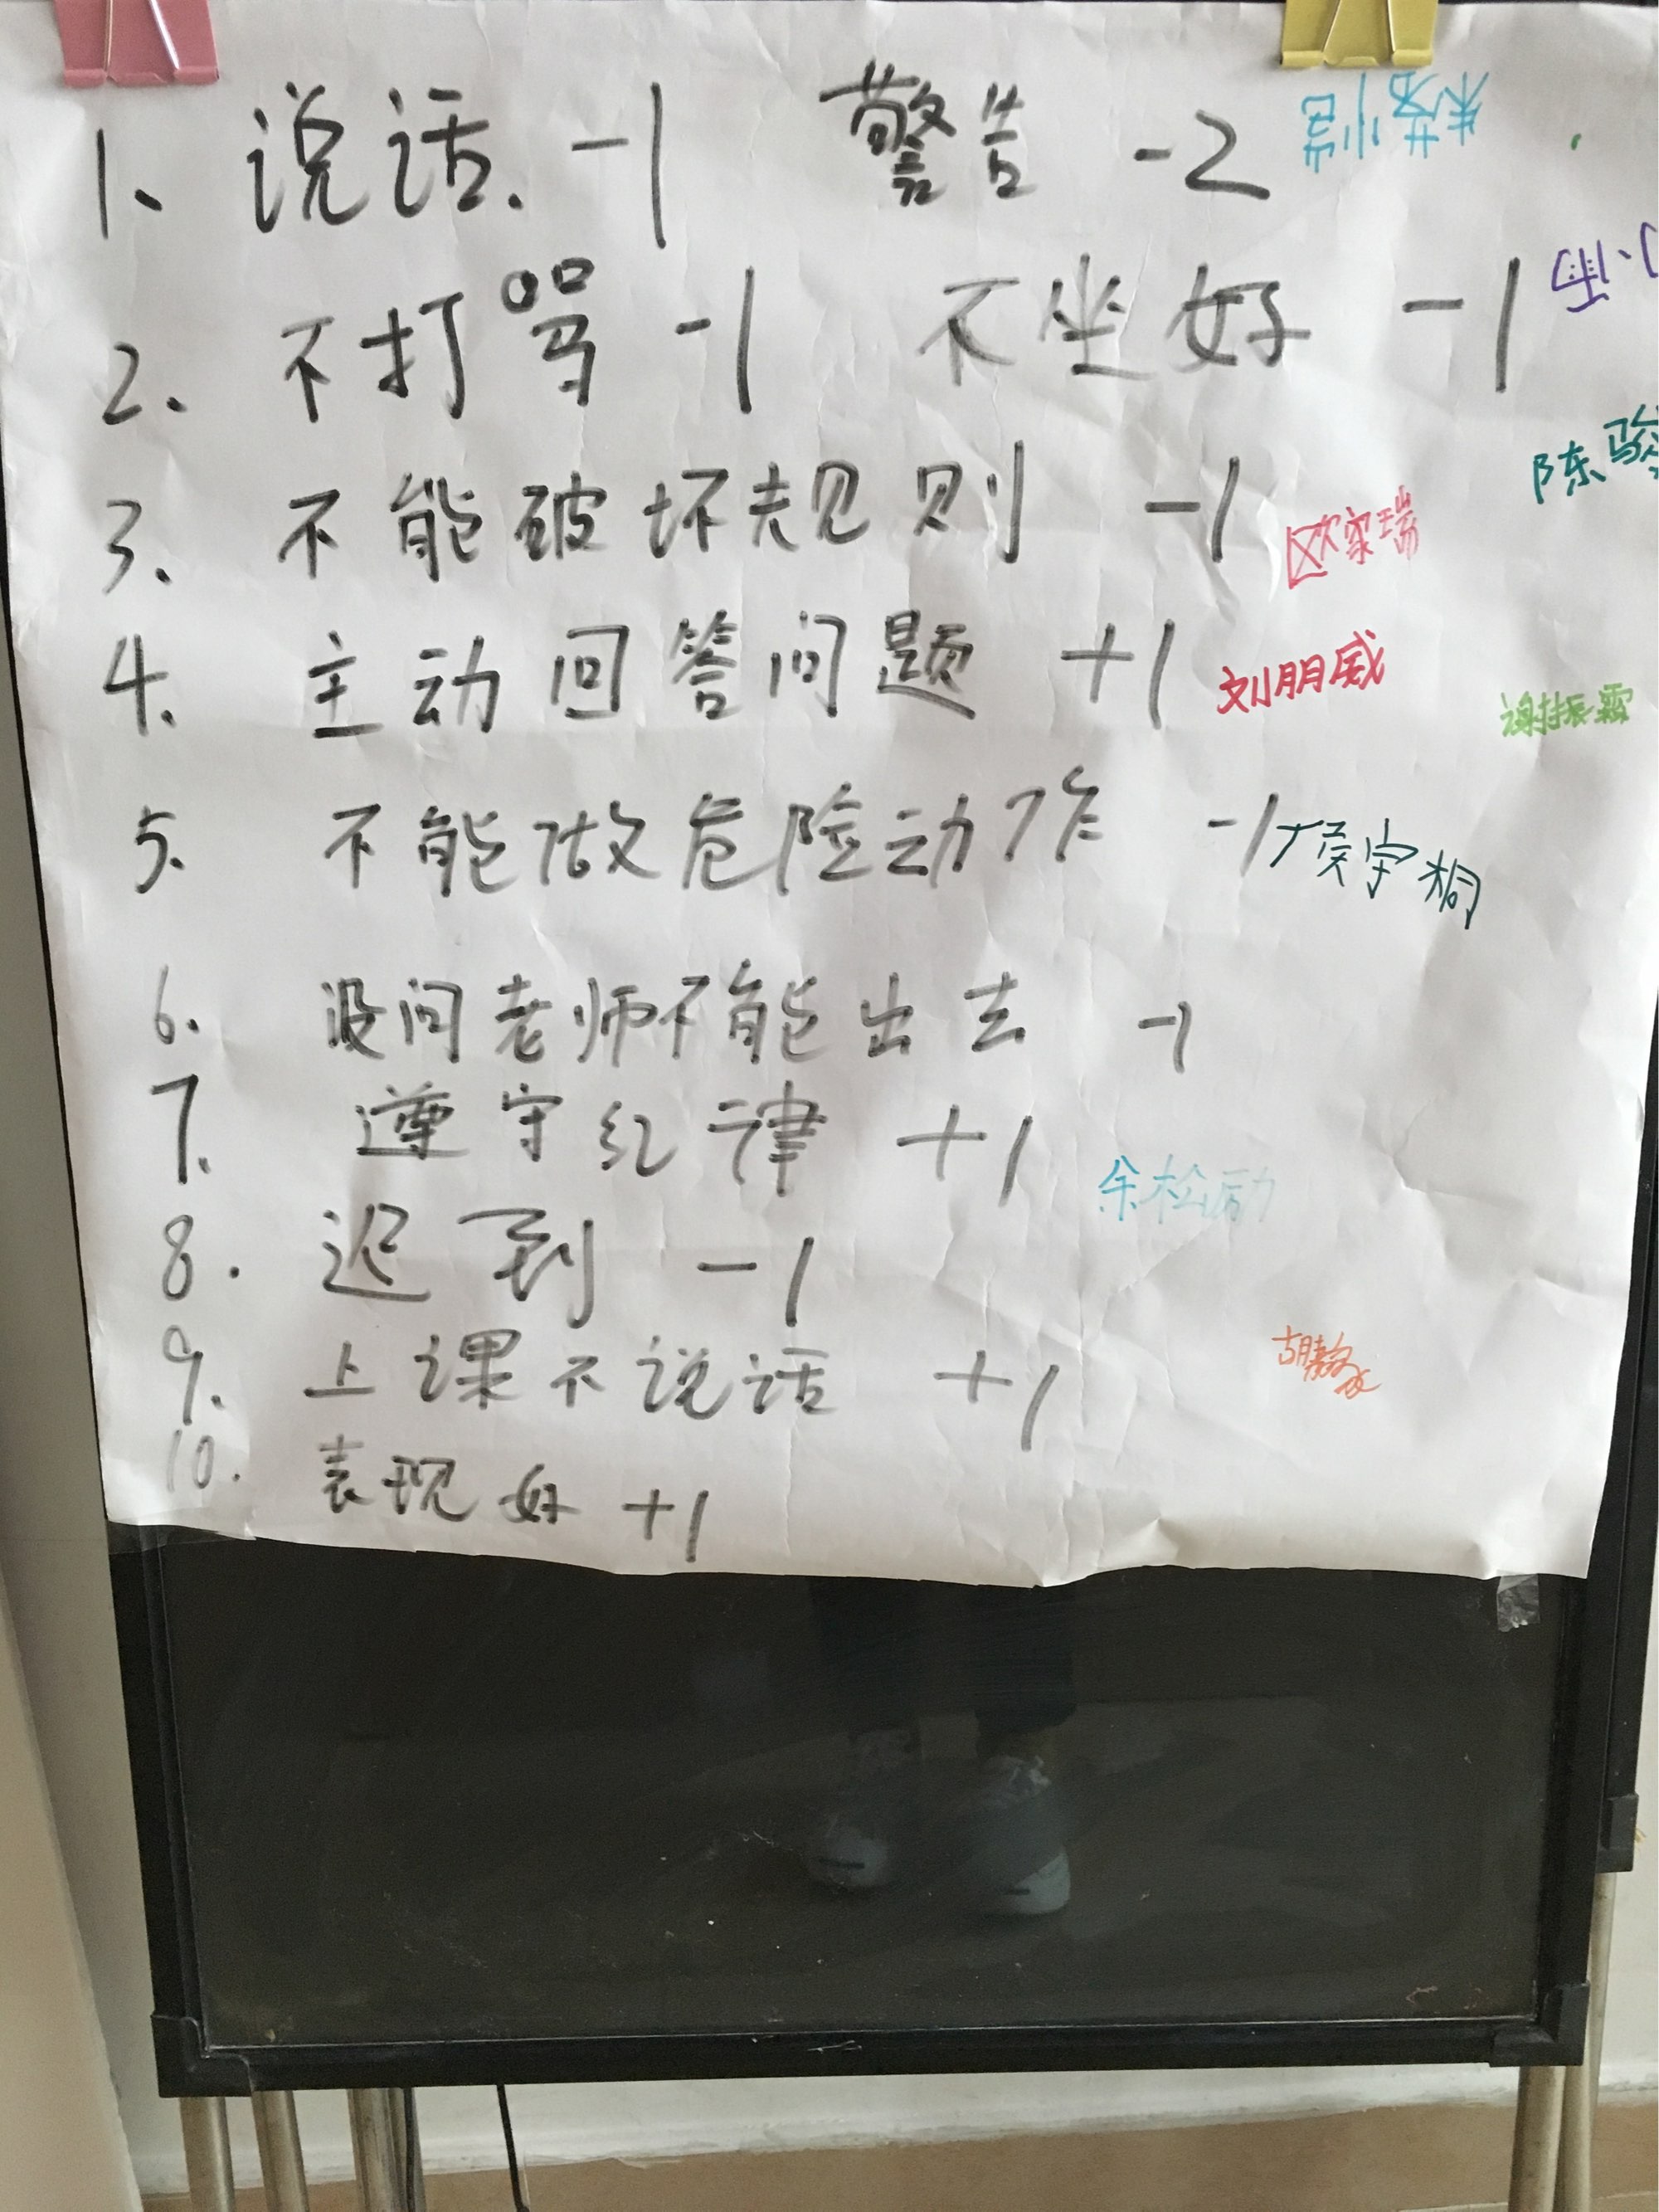 1、说话. -1 警告 -2
2. 不打骂 -1 不坐好 -1
陈骏
3. 不能破坏规则 -1 欧家瑞
4. 主动回答问题 +1 刘朋威 谢振霖
5. 不能做危险动作 -1 侯宇桐
6. 没问老师不能出去 -1
7. 遵守纪律 +1 余松励
8. 迟到 -1
9. 上课不说话 +1
胡静
10. 表现好 +1